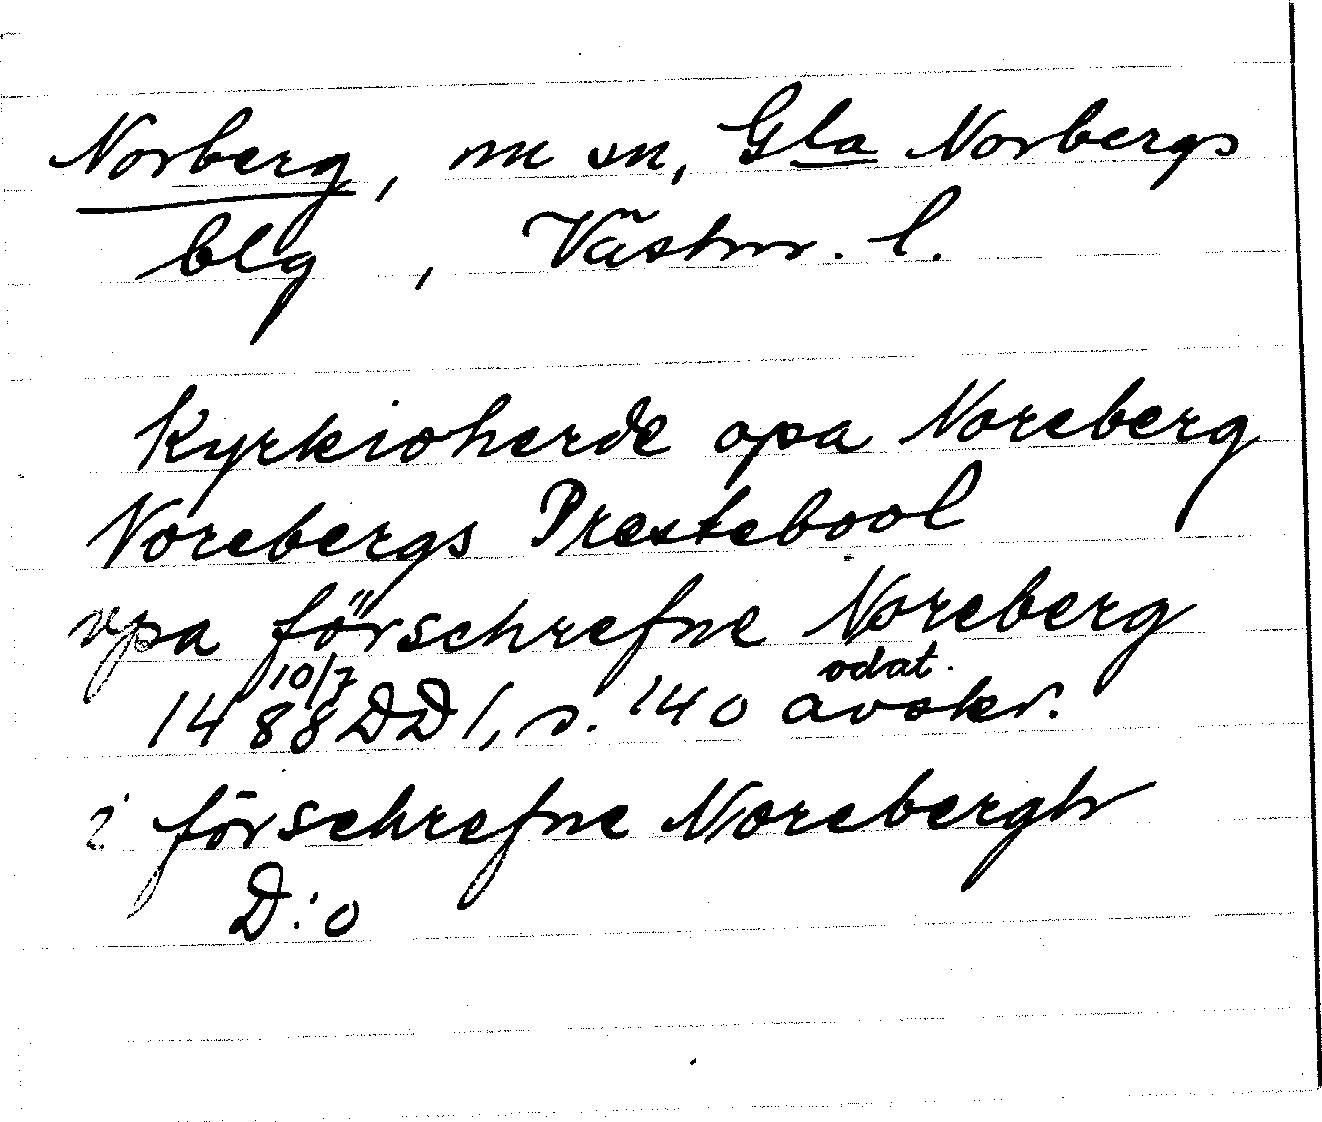 Norberg, nu sn, Gla Norbergs
blg, Västm. l.
Kyrkioherde opa Noreberg
Norebergs Prestebool
vpa förschrefne Noreberg
10/7 odat.
1488 DD 1, s. 140 avskr.
i förschrefne Norebergh
D:o